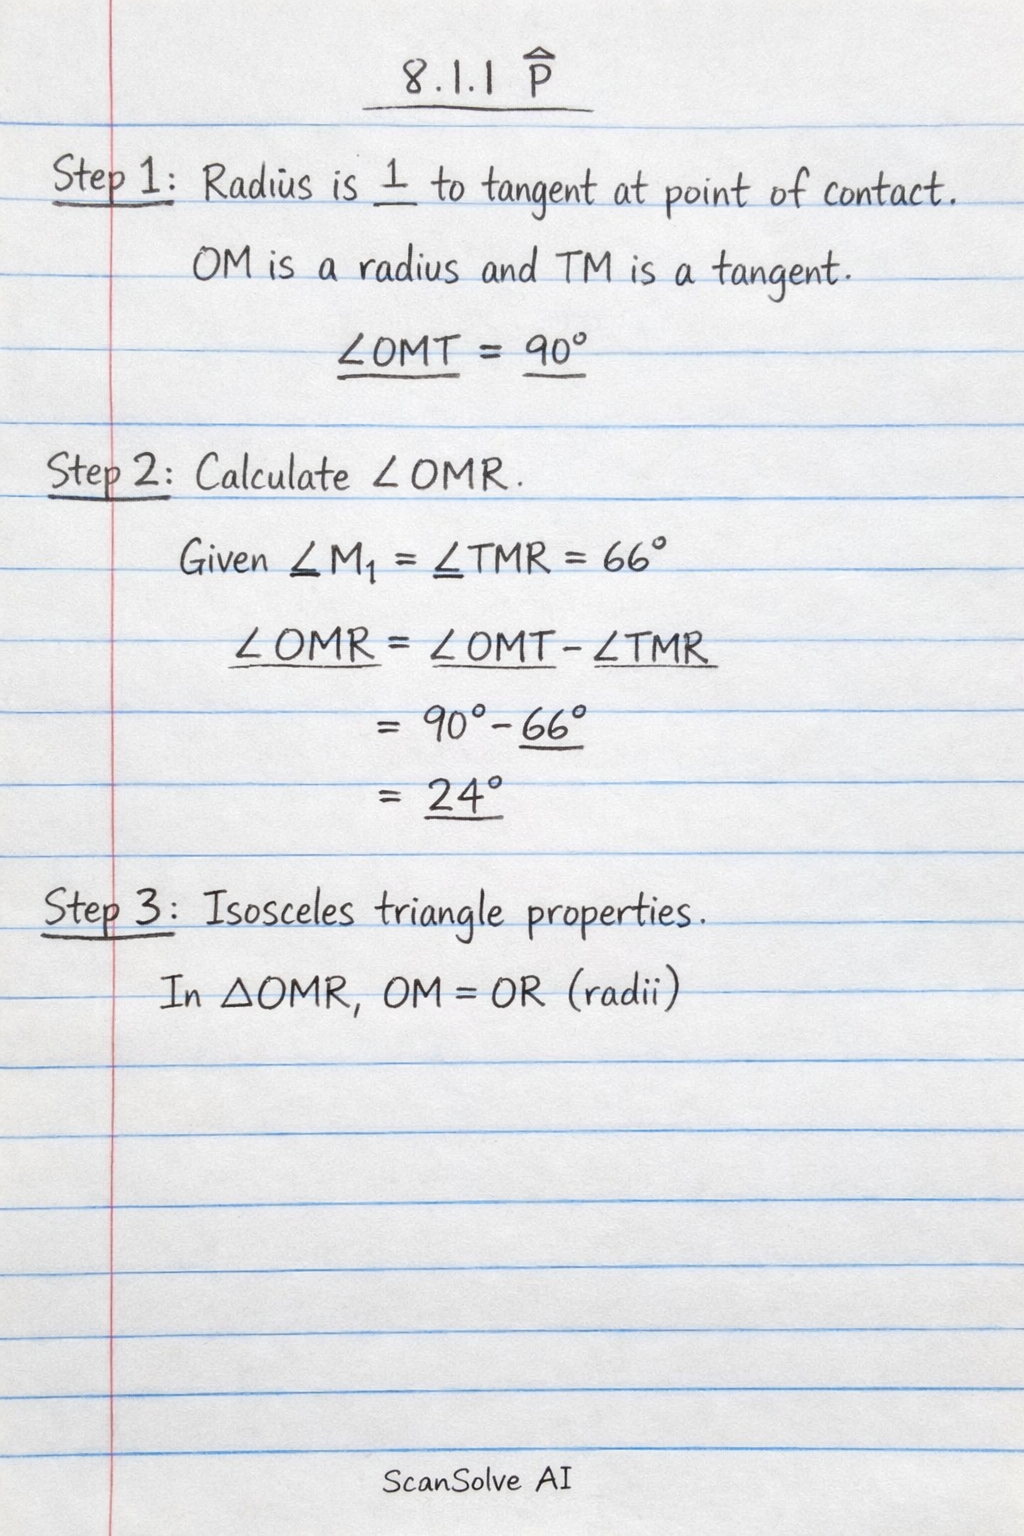 8.1.1 P̂
Step 1: Radius is ⊥ to tangent at point of contact.
OM is a radius and TM is a tangent.
∠OMT = 90°
Step 2: Calculate ∠OMR.
Given ∠M₁ = ∠TMR = 66°
∠OMR = ∠OMT - ∠TMR
= 90° - 66°
= 24°
Step 3: Isosceles triangle properties.
In △OMR, OM = OR (radii)
ScanSolve AI